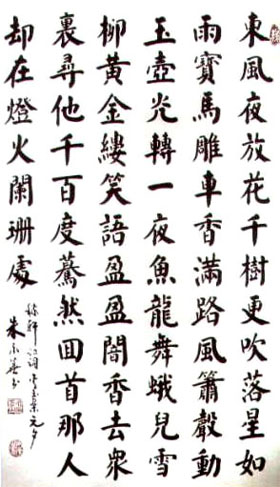 東風夜放花千樹更吹落星如
雨寶馬雕車香滿路風簫聲動
玉壺光轉一夜魚龍舞蛾兒雪
柳黃金縷笑語盈盈闇香去眾
裏尋他千百度驀然回首那人
却在燈火闌珊處
稼軒詞青玉案元夕
朱永書